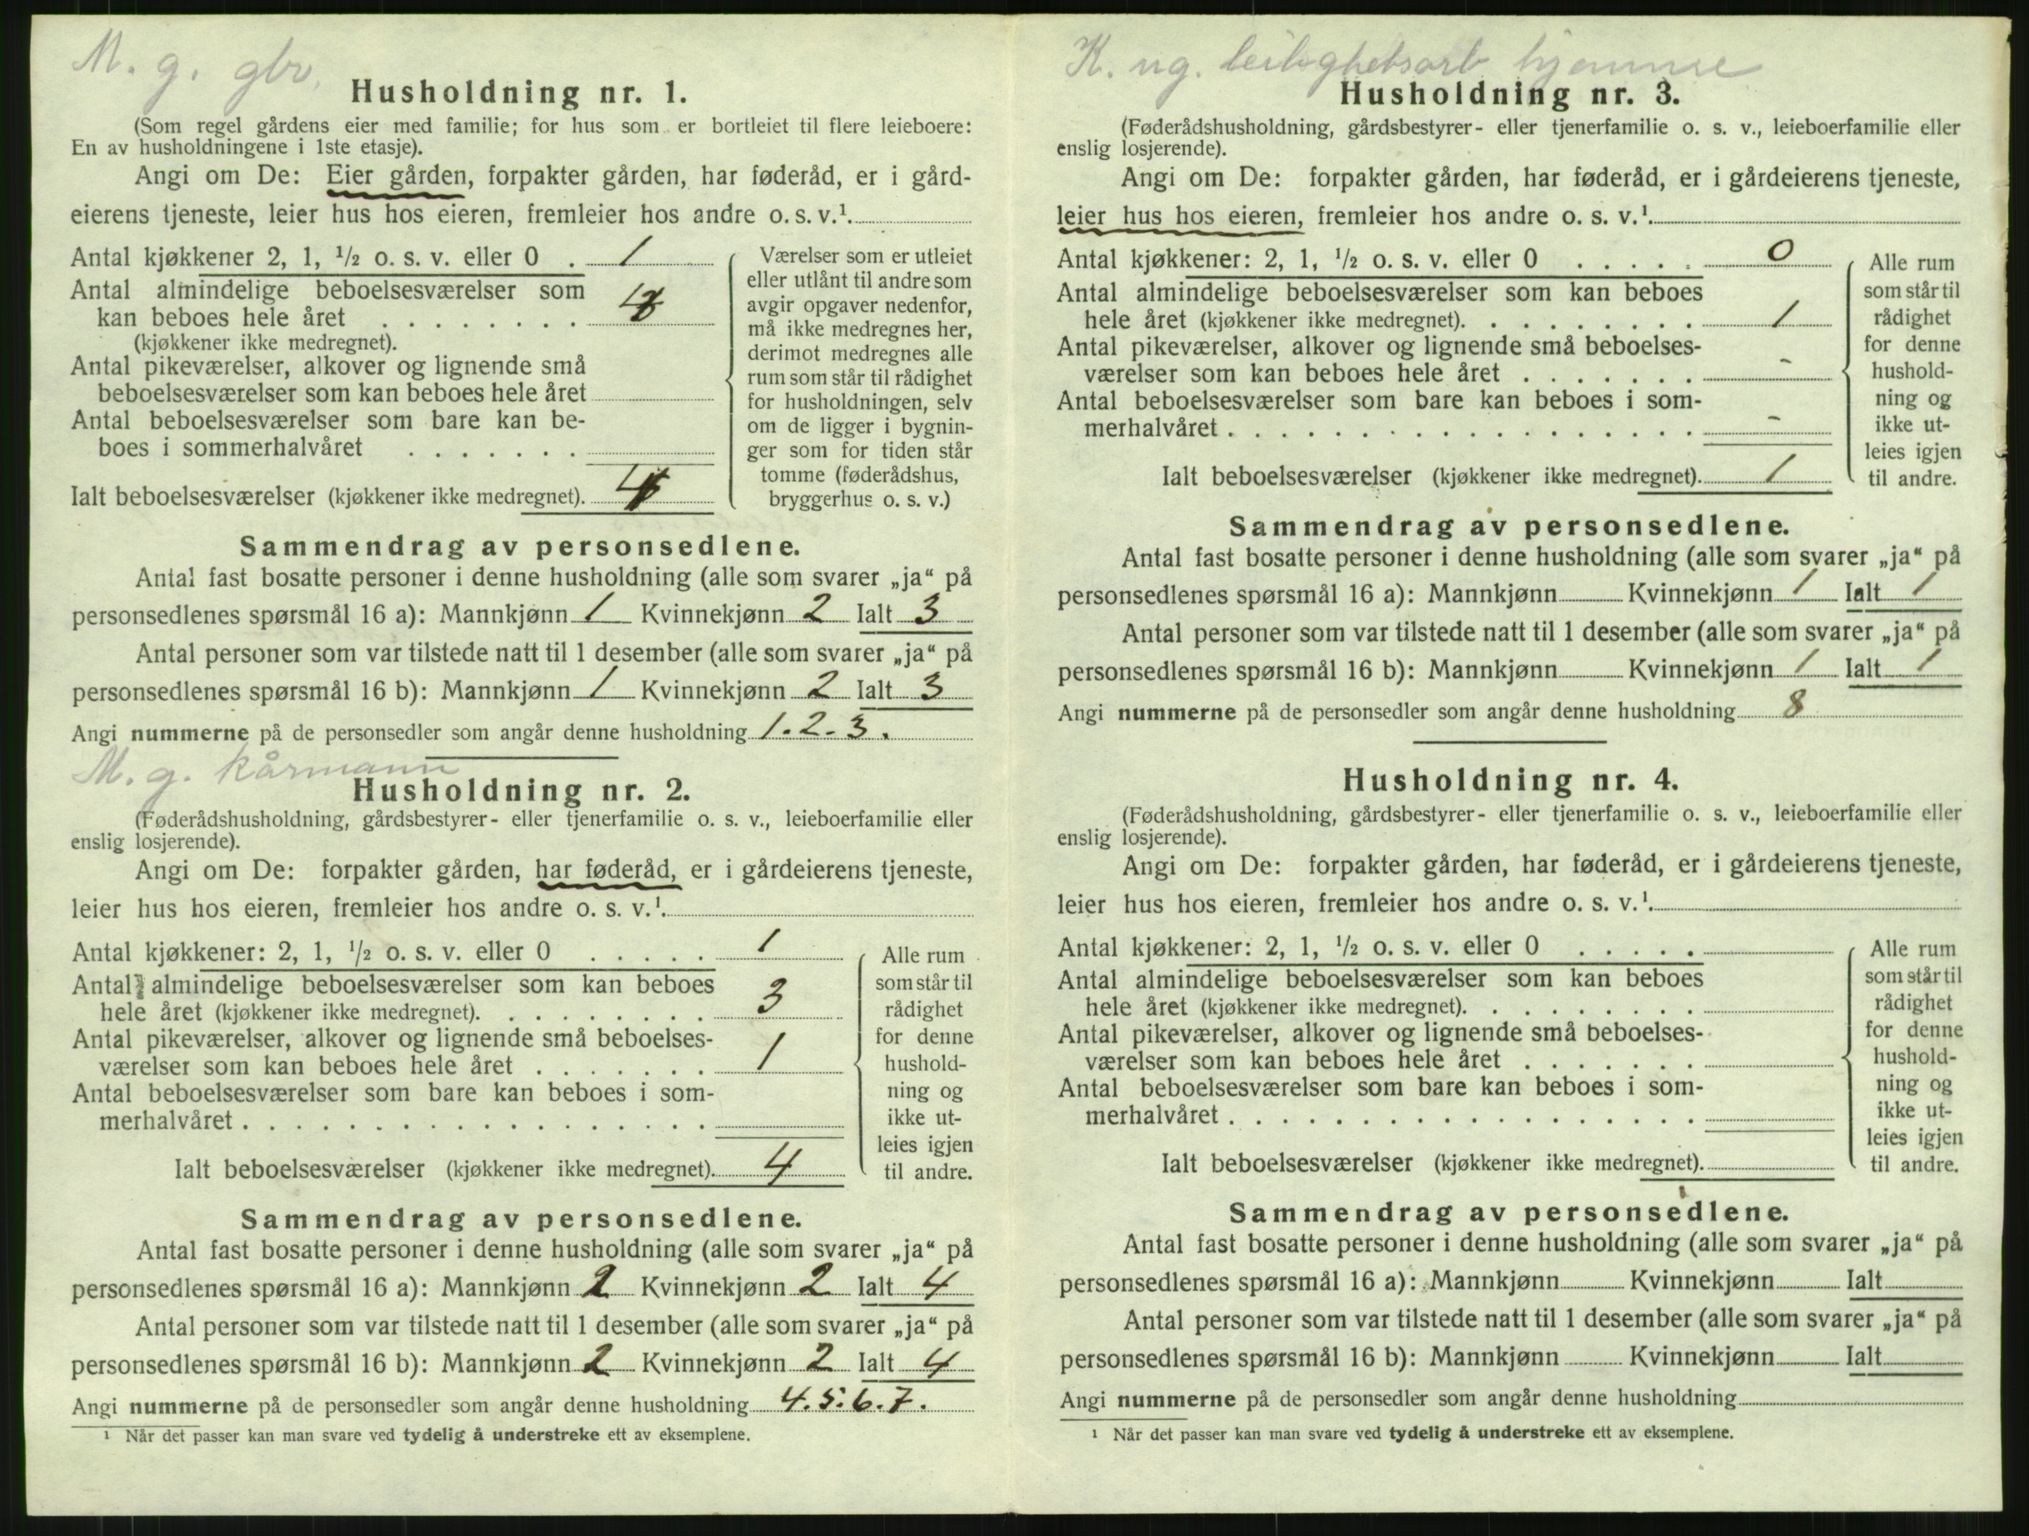 M. g. gbr.
Husholdning nr. 1.
(Som regel gårdens eier med familie; for hus som er bortleiet til flere leieboere:
En av husholdningene i 1ste etasje).
Angi om De: Eier gården, forpakter gården, har føderåd, er i gård-
eierens tjeneste, leier hus hos eieren, fremleier hos andre o. s. v.¹.
Antal kjøkkener 2, 1, ½ o. s. v. eller 0 . 1
Antal almindelige beboelsesværelser som
kan beboes hele året . . . . . . . . 4
(kjøkkener ikke medregnet).
Antal pikeværelser, alkover og lignende små
beboelsesværelser som kan beboes hele året
Antal beboelsesværelser som bare kan be-
boes i sommerhalvåret . . . . . . .
Ialt beboelsesværelser (kjøkkener ikke medregnet). 4
Værelser som er utleiet
eller utlånt til andre som
avgir opgaver nedenfor,
må ikke medregnes her,
derimot medregnes alle
rum som står til rådighet
for husholdningen, selv
om de ligger i bygnin-
ger som for tiden står
tomme (føderådshus,
bryggerhus o. s. v.)
Sammendrag av personsedlene.
Antal fast bosatte personer i denne husholdning (alle som svarer „ja“ på
personsedlenes spørsmål 16 a): Mannkjønn 1 Kvinnekjønn 2 Ialt 3
Antal personer som var tilstede natt til 1 desember (alle som svarer „ja“ på
personsedlenes spørsmål 16 b): Mannkjønn 1 Kvinnekjønn 2 Ialt 3
Angi nummerne på de personsedler som angår denne husholdning 1.2.3.
M. g. kårmann
Husholdning nr. 2.
(Føderådshusholdning, gårdsbestyrer- eller tjenerfamilie o. s. v., leieboerfamilie eller
enslig losjerende).
Angi om De: forpakter gården, har føderåd, er i gårdeierens tjeneste,
leier hus hos eieren, fremleier hos andre o. s. v.¹.
Antal kjøkkener: 2, 1, ½ o. s. v. eller 0 . . . . . 1
Antal almindelige beboelsesværelser som kan beboes
hele året (kjøkkener ikke medregnet). . . . . . . . . 3
Antal pikeværelser, alkover og lignende små beboelses-
værelser som kan beboes hele året . . . . . . . 1
Antal beboelsesværelser som bare kan beboes i som-
merhalvåret . . . . . . . . . . . . . . . . . .
Ialt beboelsesværelser (kjøkkener ikke medregnet). 4
Alle rum
som står til
rådighet
for denne
hushold-
ning og
ikke ut-
leies igjen
til andre.
Sammendrag av personsedlene.
Antal fast bosatte personer i denne husholdning (alle som svarer „ja“ på
personsedlenes spørsmål 16 a): Mannkjønn 2 Kvinnekjønn 2 Ialt 4
Antal personer som var tilstede natt til 1 desember (alle som svarer „ja“ på
personsedlenes spørsmål 16 b): Mannkjønn 2 Kvinnekjønn 2 Ialt 4
Angi nummerne på de personsedler som angår denne husholdning 4.5.6.7.
¹ Når det passer kan man svare ved tydelig å understreke ett av eksemplene.
K. ug. leilighetsarb hjemme
Husholdning nr. 3.
(Føderådshusholdning, gårdsbestyrer- eller tjenerfamilie o. s. v., leieboerfamilie eller
enslig losjerende).
Angi om De: forpakter gården, har føderåd, er i gårdeierens tjeneste,
leier hus hos eieren, fremleier hos andre o. s. v.¹.
Antal kjøkkener: 2, 1, ½ o. s. v. eller 0 . . . . . 0
Antal almindelige beboelsesværelser som kan beboes
hele året (kjøkkener ikke medregnet). . . . . . . . . 1
Antal pikeværelser, alkover og lignende små beboelses-
værelser som kan beboes hele året . . . . . . . -
Antal beboelsesværelser som bare kan beboes i som-
merhalvåret . . . . . . . . . . . . . . . . . . -
Ialt beboelsesværelser (kjøkkener ikke medregnet). 1
Alle rum
som står til
rådighet
for denne
hushold-
ning og
ikke ut-
leies igjen
til andre.
Sammendrag av personsedlene.
Antal fast bosatte personer i denne husholdning (alle som svarer „ja“ på
personsedlenes spørsmål 16 a): Mannkjønn Kvinnekjønn 1 Ialt 1
Antal personer som var tilstede natt til 1 desember (alle som svarer „ja“ på
personsedlenes spørsmål 16 b): Mannkjønn Kvinnekjønn 1 Ialt 1
Angi nummerne på de personsedler som angår denne husholdning 8
Husholdning nr. 4.
(Føderådshusholdning, gårdsbestyrer- eller tjenerfamilie o. s. v., leieboerfamilie eller
enslig losjerende).
Angi om De: forpakter gården, har føderåd, er i gårdeierens tjeneste,
leier hus hos eieren, fremleier hos andre o. s. v.¹.
Antal kjøkkener: 2, 1, ½ o. s. v. eller 0 . . . . .
Antal almindelige beboelsesværelser som kan beboes
hele året (kjøkkener ikke medregnet). . . . . . . . .
Antal pikeværelser, alkover og lignende små beboelses-
værelser som kan beboes hele året . . . . . . .
Antal beboelsesværelser som bare kan beboes i som-
merhalvåret . . . . . . . . . . . . . . . . . .
Ialt beboelsesværelser (kjøkkener ikke medregnet).
Alle rum
som står til
rådighet
for denne
hushold-
ning og
ikke ut-
leies igjen
til andre.
Sammendrag av personsedlene.
Antal fast bosatte personer i denne husholdning (alle som svarer „ja“ på
personsedlenes spørsmål 16 a): Mannkjønn Kvinnekjønn Ialt
Antal personer som var tilstede natt til 1 desember (alle som svarer „ja“ på
personsedlenes spørsmål 16 b): Mannkjønn Kvinnekjønn Ialt
Angi nummerne på de personsedler som angår denne husholdning
¹ Når det passer kan man svare ved tydelig å understreke ett av eksemplene.